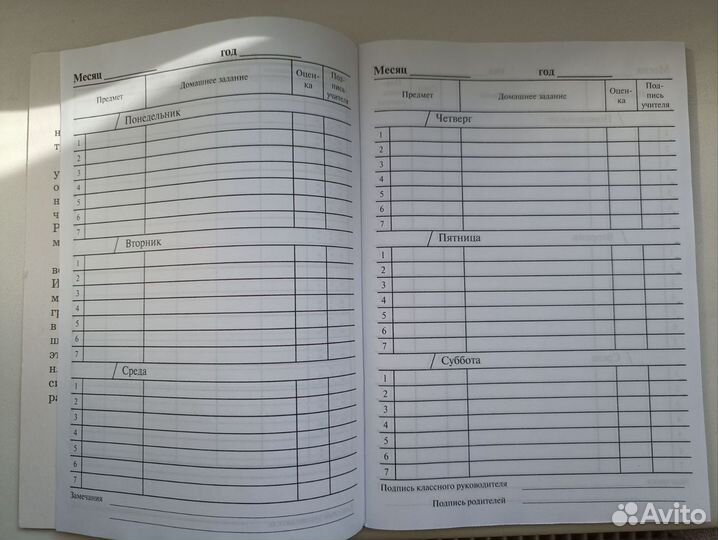 Месяц год
Предмет
Домашнее задание
Оцен-
ка
Под-
пись
учителя
Понедельник
1
2
3
4
5
6
7
Вторник
1
2
3
4
5
6
7
Среда
1
2
3
4
5
6
7
Замечания
Месяц год
Предмет
Домашнее задание
Оцен-
ка
Под-
пись
учителя
Четверг
1
2
3
4
5
6
7
Пятница
1
2
3
4
5
6
7
Суббота
1
2
3
4
5
6
7
Подпись классного руководителя
Подпись родителей
Avito